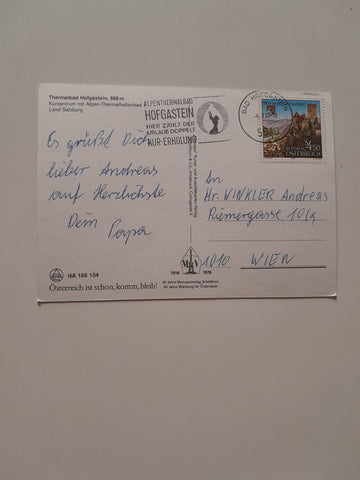 Thermalbad Hofgastein, 869 m
Kurzentrum mit Alpen-Thermalhallenbad
Land Salzburg
ALPENTHERMALBAD
HOFGASTEIN
HIER ZÄHLT DER
URLAUB DOPPELT
KUR-ERHOLUNG
BAD HOFGASTEIN
REPUBLIK
ÖSTERREICH
S 4.50
Es grüßt Dich
lieber Andreas
auf Herzlichste
Dein Papa
An
Hr. WINKLER Andreas
Riemergasse 10/9
1010 WIEN
NA 166 154
Österreich ist schön, komm, bleib!
1918 1978
60 Jahre Werbung für Österreich